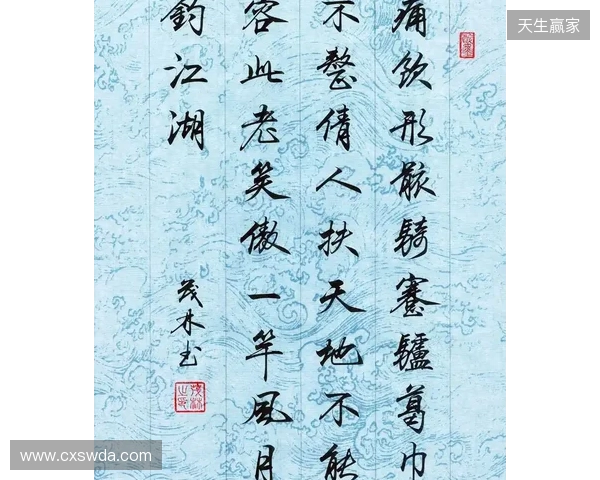 天生赢家
痛飲形骸騎蹇驢葛巾
不整倩人扶天地不能
容此老笑傲一竿風月
釣江湖
茂林书
www.cxswda.com